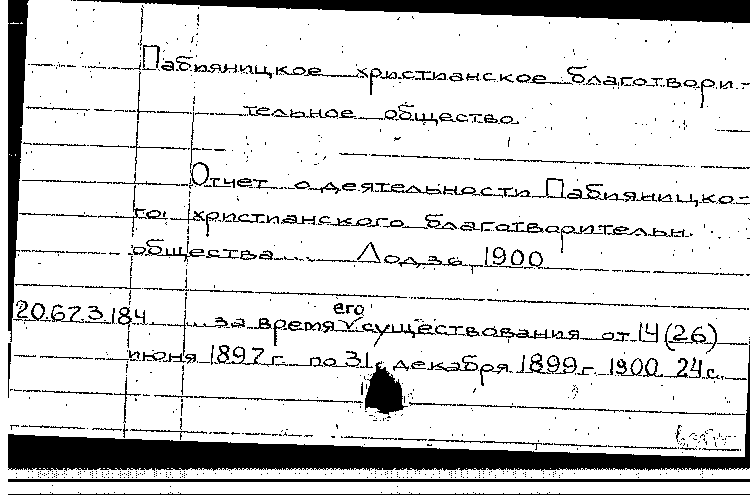 Пабияницкое христианское благотвори-
тельное общество.
Отчет о деятельности Пабияницко-
го христианского благотворительн.
общества... Лодзь, 1900
его
20.673.184 ... за время √ существования от 14 (26)
июня 1897 г. по 31 декабря 1899 г. 1900. 24 с.